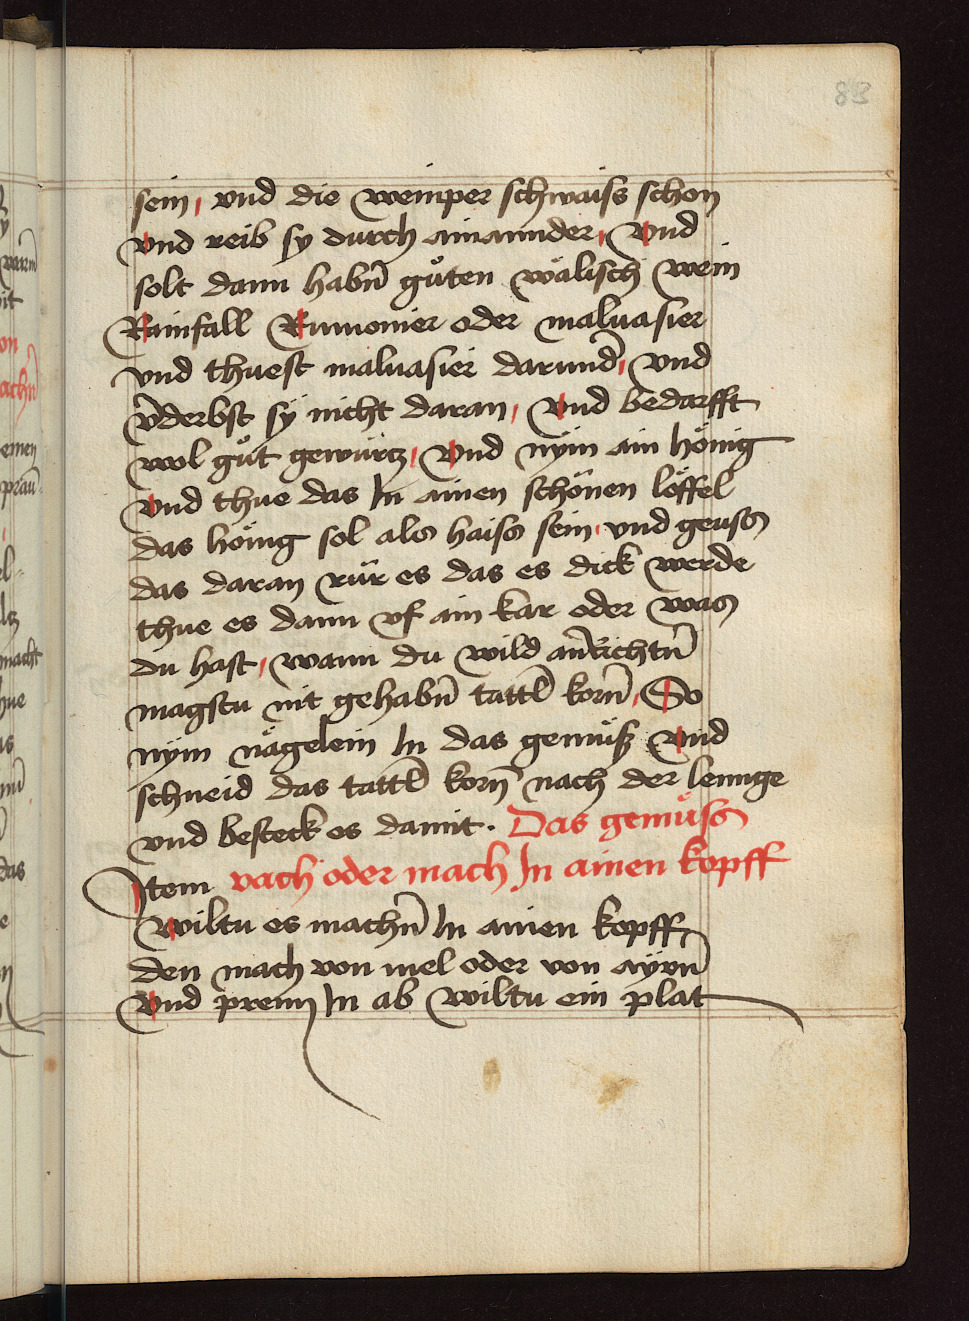 83
sein, vnd die weinper schwaiss schon
vnd reib sy durch ainainnder, Vnd
solt dann habn̄ gůten wälisch wein
Rainfall Rumonier oder maluasier
vnd thuest maluasier darund̄, vnd
v̄derbst sÿ nicht daran, Vnd bedarfft
wol gůt gewürtz, Vnd nÿm ain hönig
Vnd thue das In ainen schönen löffel
das hönig sol als haiss sein, vnd geuss
das daran rür es das es dick werde
thue es dann vf ain kar oder was
du hast, wann du wild an̄richtn̄
magstu nit gehabn̄ tattl̄ korn̄, So
nÿm nägelein In das gemüß Vnd
schneid das tattl̄ korn̄ nach der lennge
vnd besteck es damit. Das gemüss
Item vach oder mach In ainen kopff
Wiltu es machn̄ In ainen kopff
den mach von mel oder von aÿrn̄
Vnd prenn In ab wiltu ein plat